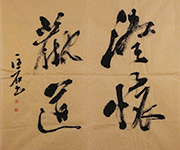 澄懷
觀道